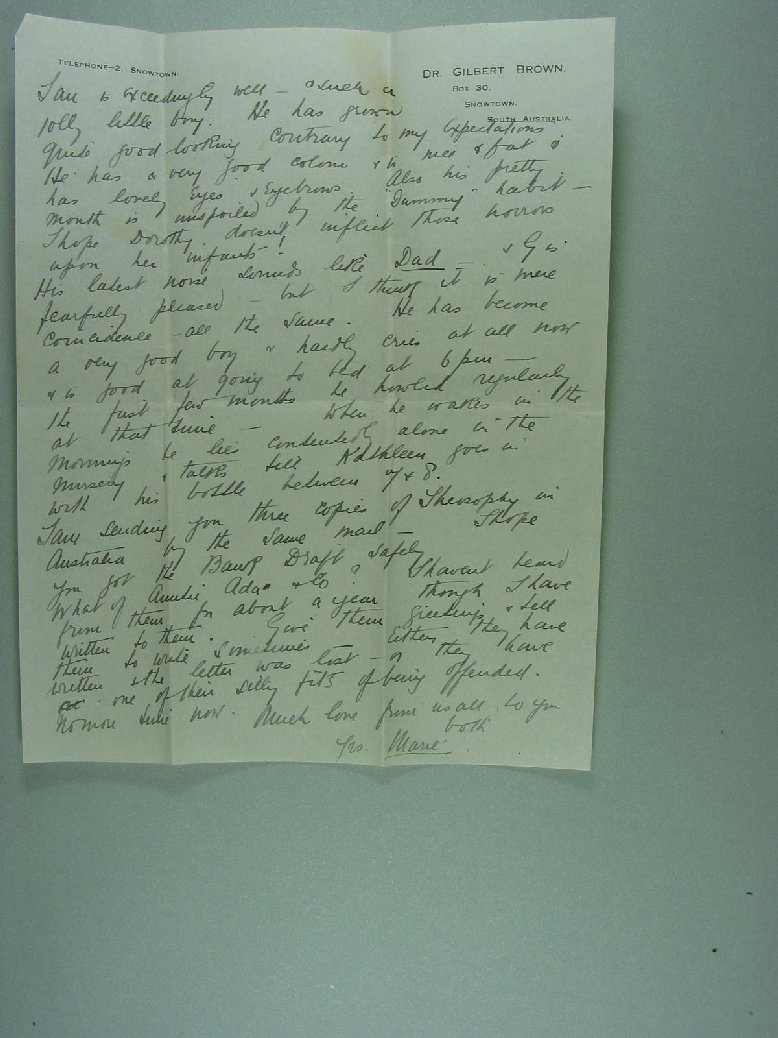 TELEPHONE—2 SNOWTOWN.
DR. GILBERT BROWN,
BOX 30,
SNOWTOWN,
SOUTH AUSTRALIA.
Ian is exceedingly well — & such a
jolly little boy. He has grown
quite good-looking contrary to my expectations
He has a very good colour & is nice & fat &
has lovely eyes & eyebrows. Also his pretty
mouth is unspoiled by the "Dummy" habit —
I hope Dorothy doesn't inflict those horrors
upon her infants!
His latest noise sounds like Dad — & G is
fearfully pleased — but I think it is mere
coincidence all the same. He has become
a very good boy & hardly cries at all now
& is good at going to bed at 6 pm —
the first few months he howled regularly
at that time — When he wakes in the
mornings he lies contentedly alone in the
nursery & talks till Kathleen goes in
with his bottle between 7 & 8.
I am sending you three copies of Theosophy in
Australia by the same mail — I hope
you got the Bank Draft safely
What of Auntie Ada & Co? I havent heard
from them for about a year though I have
written to them. Give them greetings & tell
them to write sometimes Either they have
written & the letter was lost — or they have
one of their silly fits of being offended.
No more time now. Much love from us all to you
both
Yrs. Marie